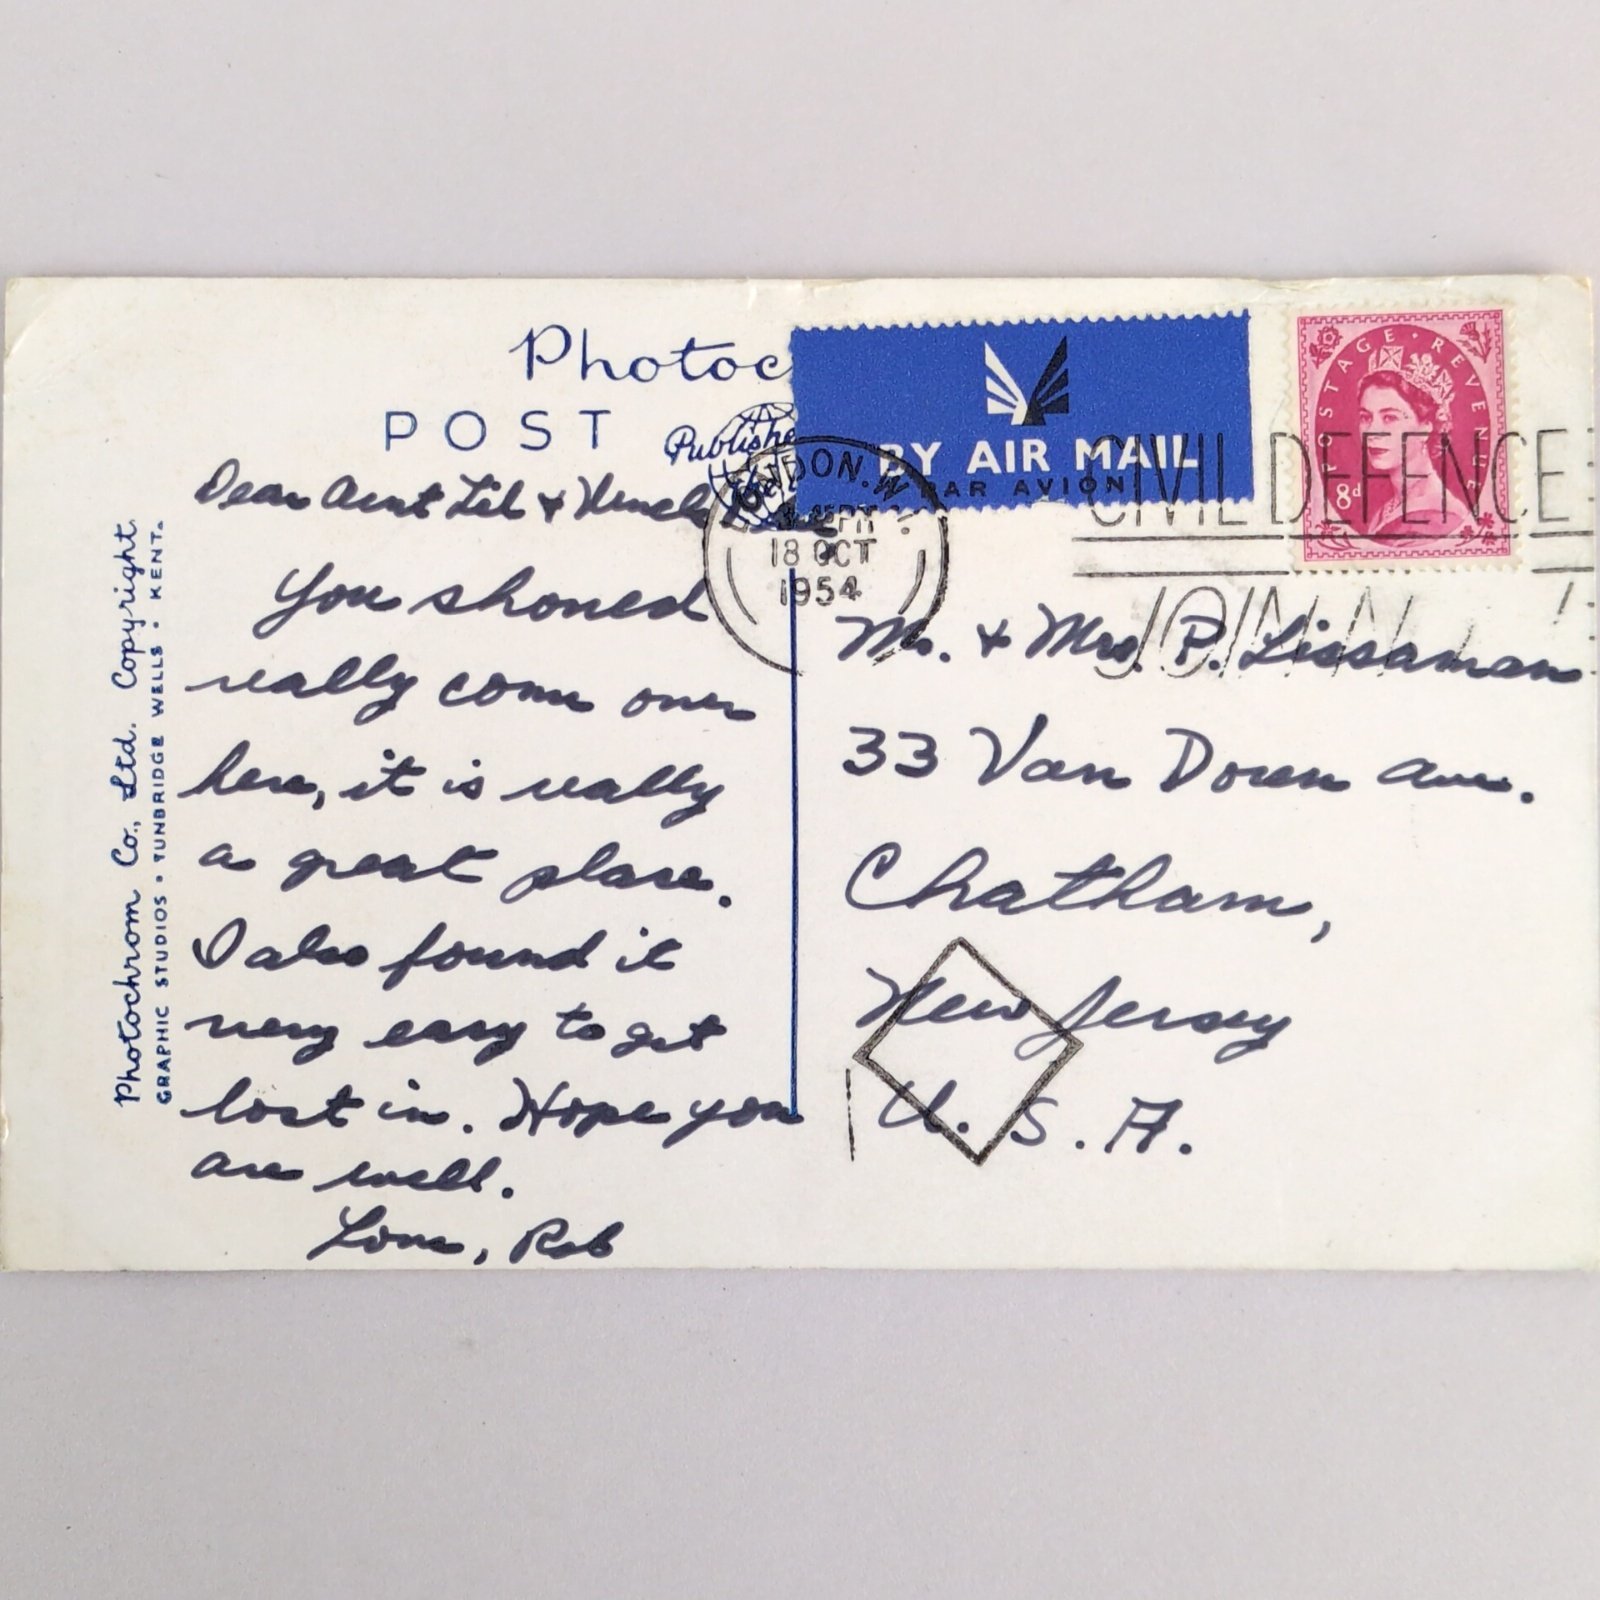 Photoc
POST
Publishe
Dear Aunt Lil & Uncle
You shoned
really come over
here, it is really
a great place.
I also found it
very easy to get
lost in. Hope you
are well.
Love, Rob
Photochrom Co., Ltd. Copyright.
GRAPHIC STUDIOS • TUNBRIDGE WELLS • KENT.
BY AIR MAIL
PAR AVION
NDON. W
18 OCT
1954
CIVIL DEFENCE
JOIN N
POSTAGE • REVENUE
8d
Mr. & Mrs. P. Lissaman
33 Van Doren Ave.
Chatham,
New Jersey
U. S. A.